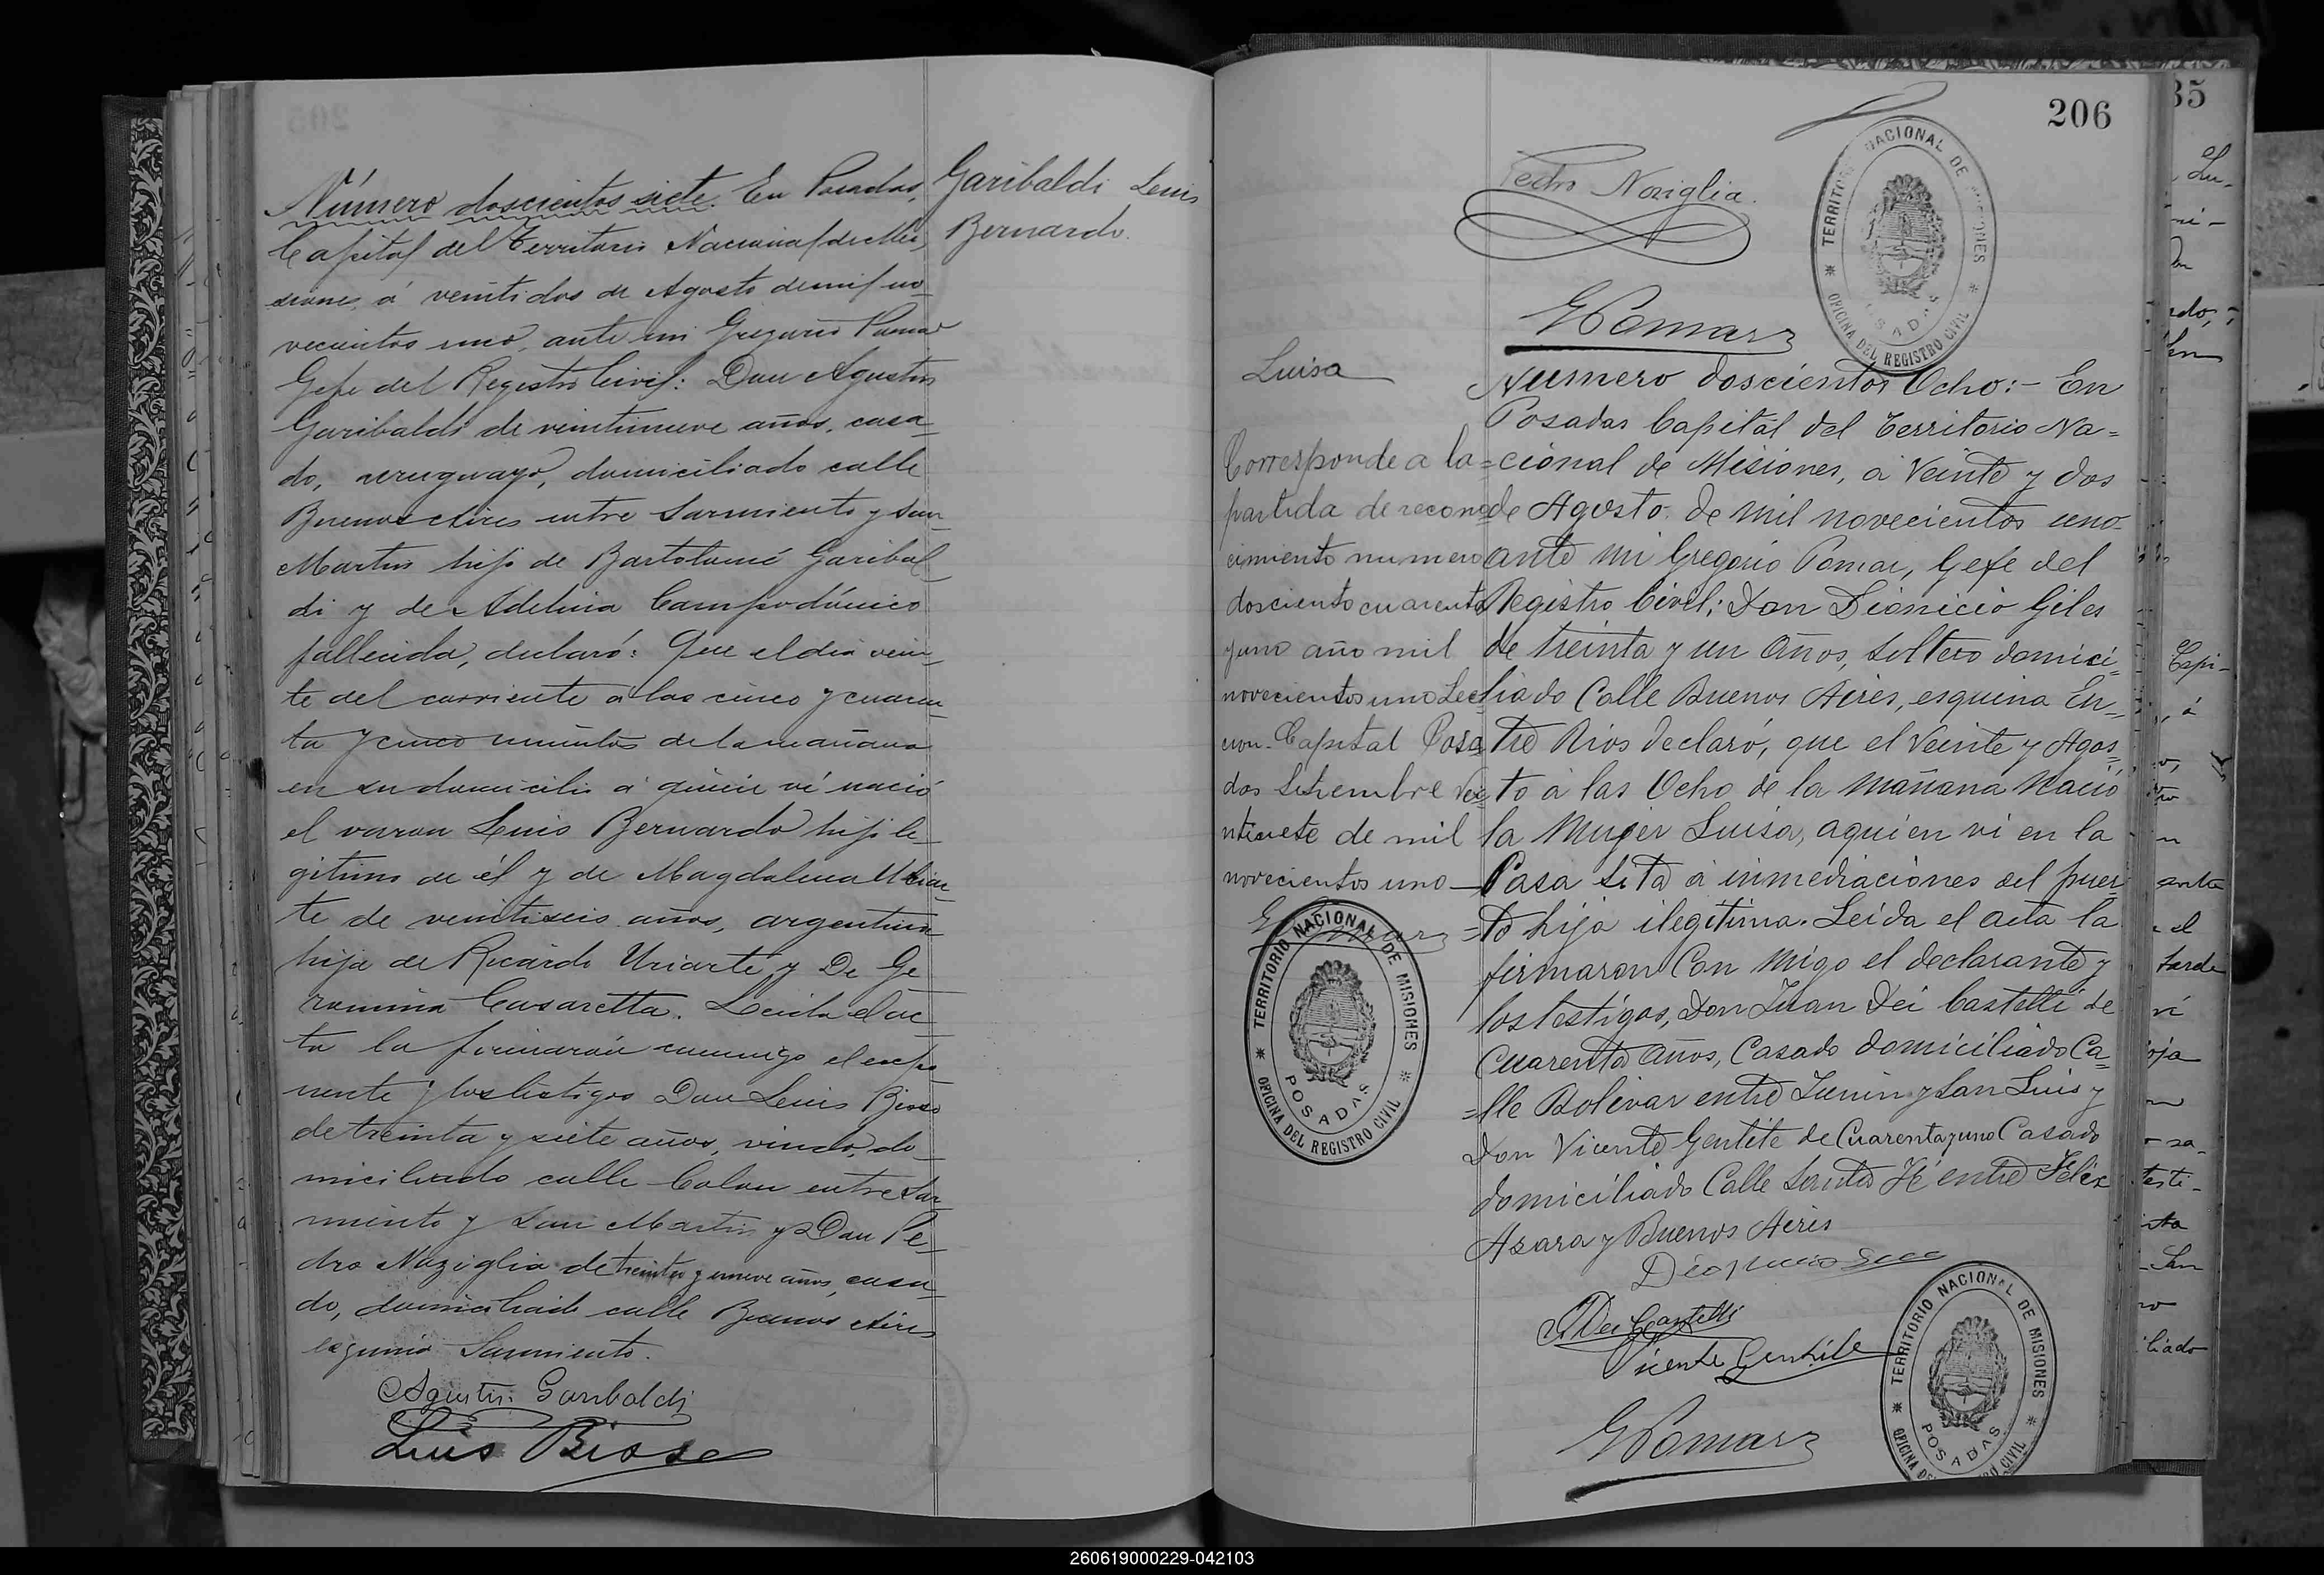 Número doscientos siete. En Posadas,
Capital del Territorio Nacional de Mi
siones, á veintidos de Agosto de mil no
vecientos uno, ante mi Gregorio Pomar
Gefe del Registro Civil: Don Agustin
Garibaldi de veintinueve años, casa
do, uruguayo, domiciliado calle
Buenos Aires entre Sarmiento y San
Martin hijo de Bartolomé Garibal
di y de Adelina Campodónico
fallecida, declaró: Que el dia vein
te del corriente á las cinco y cuaren
ta y cinco minutos de la mañana
en su domicilio á quien ví nació
el varon Luis Bernardo hijo le
gitimo de él y de Magdalena Uriar
te de veintiseis años, argentina
hija de Ricardo Uriarte y De Ge
romina Casaretta. Leida el ac
ta la firmarán conmigo el expo
nente y los testigos Don Luis Biosse
de treinta y siete años, viudo, do
miciliado calle Colon entre Sar
miento y San Martin y Don Pe
dro Noziglia de treinta y nueve años, casa
do, domiciliado calle Buenos Aires
esquina Sarmiento.
Agustin Garibaldi
Luis Biosse
Garibaldi Luis
Bernardo.
206
Pedro Noziglia.
GPomar
TERRITORIO NACIONAL DE MISIONES
POSADAS
OFICINA DEL REGISTRO CIVIL
Luisa
Corresponde a la
partida de recono
cimiento numero
doscientos cuarenta
y uno año mil
novecientos uno Sec
cion Capital Posa
das Setiembre vei
ntisiete de mil
novecientos uno
TERRITORIO NACIONAL DE MISIONES
POSADAS
OFICINA DEL REGISTRO CIVIL
Numero doscientos Ocho:- En
Posadas Capital del Territorio Na=
=cional de Misiones, á Veinte y dos
de Agosto de mil novecientos uno
ante mi Gregorio Pomar, Gefe del
Registro Civil; Don Dionicio Giles
de treinta y un años, soltero domici
liado Calle Buenos Aires, esquina En=
tre Rios declaró, que el Veinte y Agos
to á las Ocho de la mañana Nació
la Muger Luisa, aquien vi en la
Casa sita á inmediaciones del puer
=to hija ilegitima. Leida el acta la
firmaron Con migo el declarante y
los testigos, Don Juan Dei Castelli de
Cuarenta años, Casado domiciliado Ca=
=lle Bolivar entre Junin y San Luis y
Don Vicente Gentile de Cuarenta y uno Casado
domiciliado Calle Santa Fé entre Felix
Azara y Buenos Aires
J Dei Castelli
Vicente Gentile
GPomar
TERRITORIO NACIONAL DE MISIONES
POSADAS
OFICINA DEL REGISTRO CIVIL
35
260619000229-042103